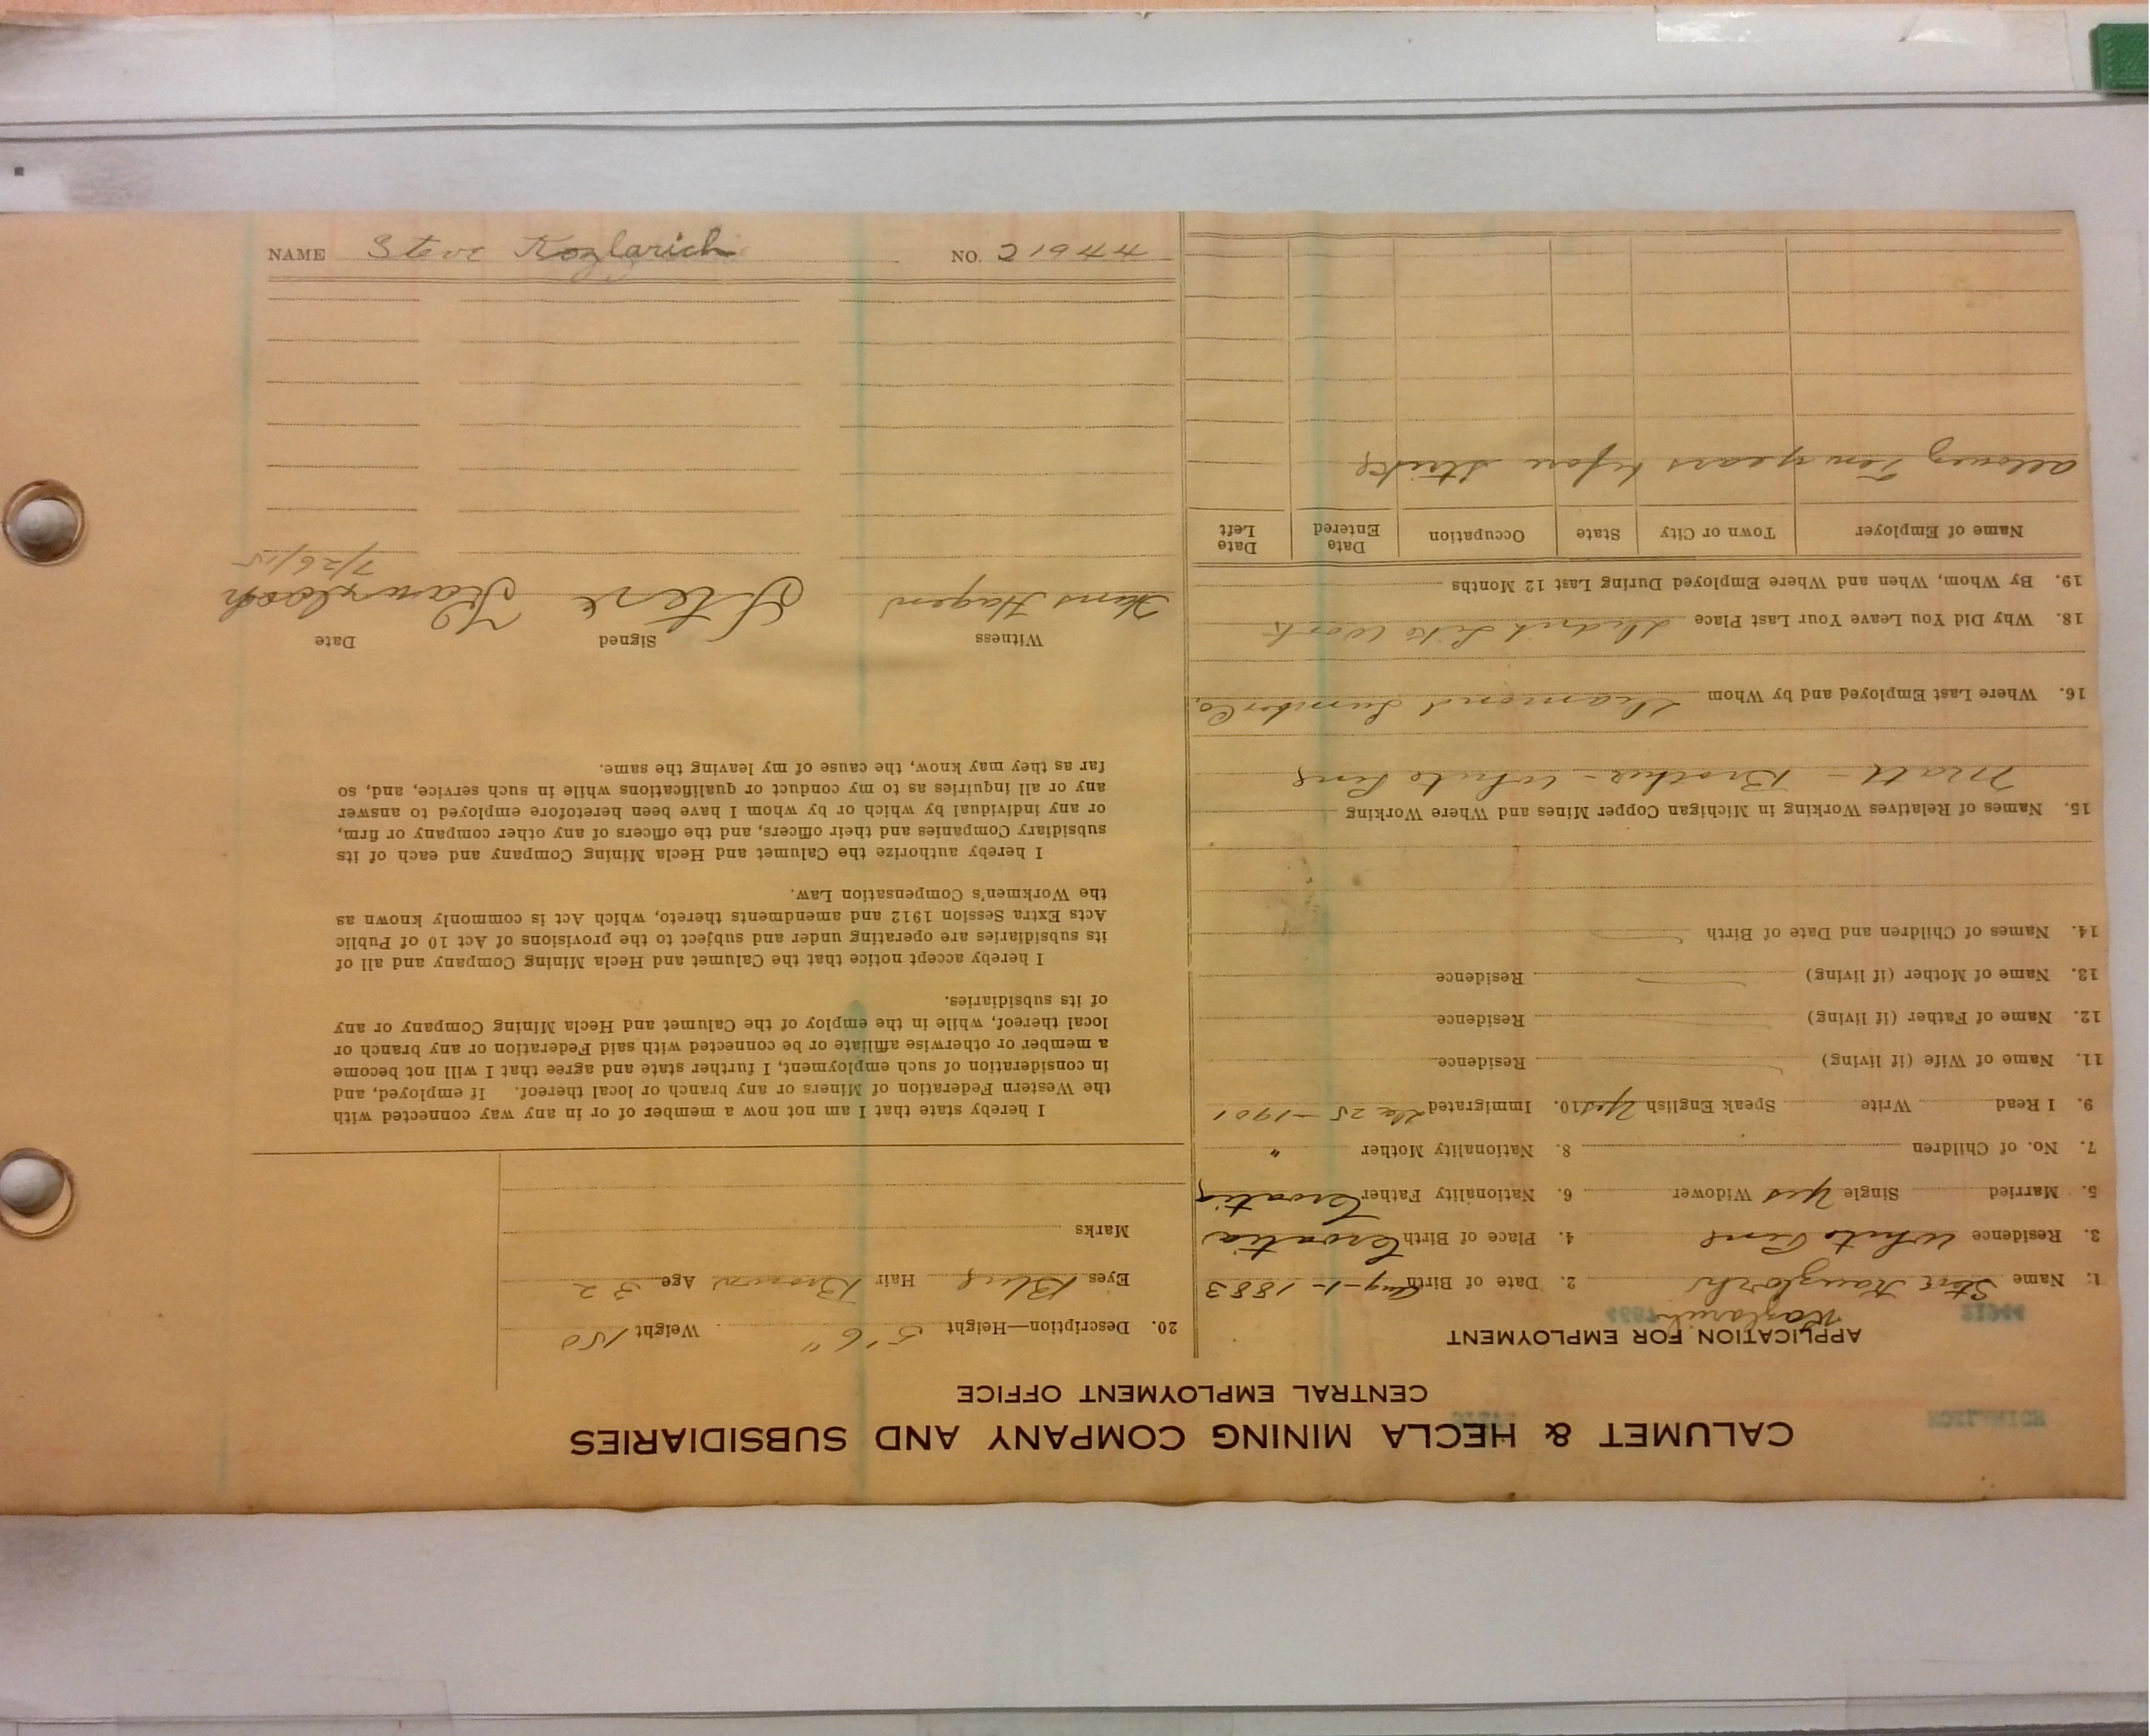 CALUMET & HECLA MINING COMPANY AND SUBSIDIARIES
CENTRAL EMPLOYMENT OFFICE
APPLICATION FOR EMPLOYMENT
21944
Kozlarich
1. Name Steve 2. Date of Birth Aug-1-1883
3. Residence White Pine 4. Place of Birth Croatia
5. Married Single Yes Widower 6. Nationality Father Croatia
7. No. of Children 8. Nationality Mother "
9. I Read Write Speak English Yes 10. Immigrated 25-1901
11. Name of Wife (if living) Residence
12. Name of Father (if living) Residence
13. Name of Mother (if living) Residence
14. Names of Children and Date of Birth
15. Names of Relatives Working in Michigan Copper Mines and Where Working
Matt - Brother - White Pine
16. Where Last Employed and by Whom Diamond Lumber Co.
18. Why Did You Leave Your Last Place Didn't Like Work
19. By Whom, When and Where Employed During Last 12 Months
Name of Employer Town or City State Occupation Date Entered Date Left
Allouez Ten years before Strike
20. Description—Height 5'6" Weight 150
Eyes Blue Hair Brown Age 32
Marks
I hereby state that I am not now a member of or in any way connected with
the Western Federation of Miners or any branch or local thereof. If employed, and
in consideration of such employment, I further state and agree that I will not become
a member or otherwise affiliate or be connected with said Federation or any branch or
local thereof, while in the employ of the Calumet and Hecla Mining Company or any
of its subsidiaries.
I hereby accept notice that the Calumet and Hecla Mining Company and all of
its subsidiaries are operating under and subject to the provisions of Act 10 of Public
Acts Extra Session 1912 and amendments thereto, which Act is commonly known as
the Workmen's Compensation Law.
I hereby authorize the Calumet and Hecla Mining Company and each of its
subsidiary Companies and their officers, and the officers of any other company or firm,
or any individual by which or by whom I have been heretofore employed to answer
any or all inquiries as to my conduct or qualifications while in such service, and, so
far as they may know, the cause of my leaving the same.
Witness Signed Date
Hagen Steve 7/26/15
NAME Steve Kozlarich NO. 21944